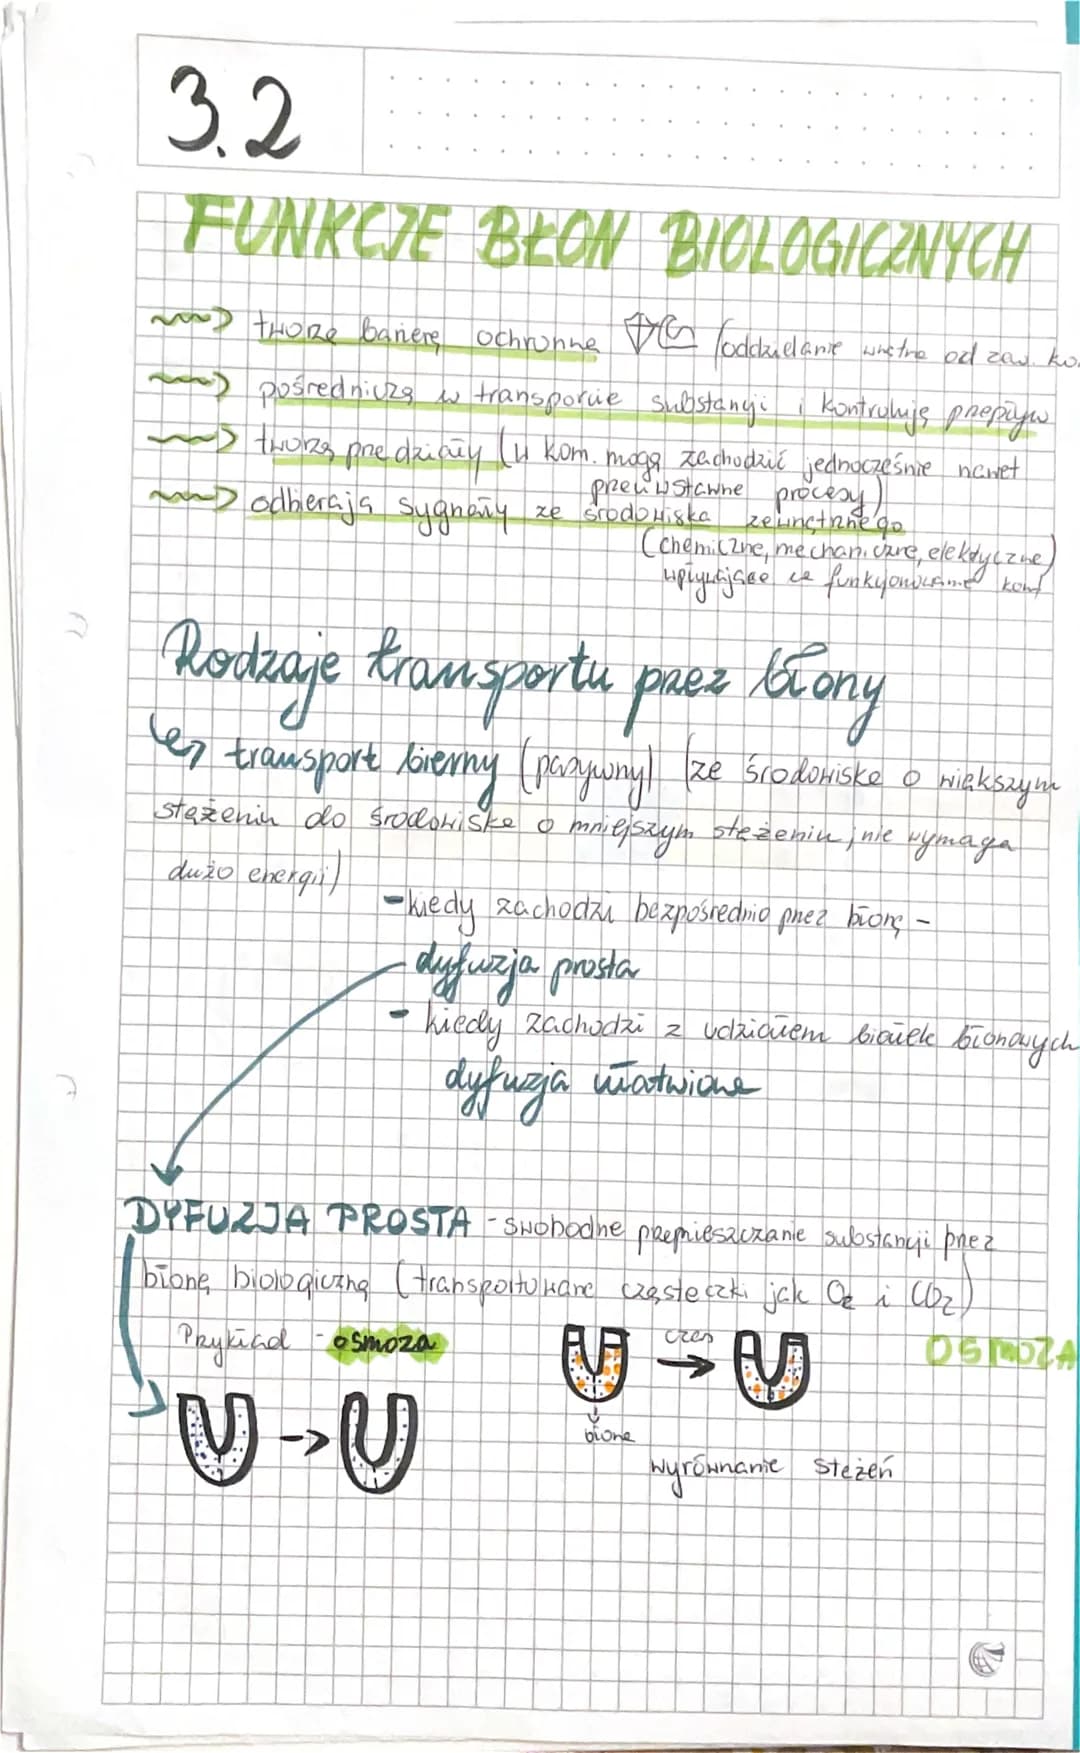 3.2
FUNKCJE BŁON BIOLOGICZNYCH
tworzą barierę ochronną (oddzielanie wnętrza od zew. ko
pośredniczą w transporcie substancji i kontrolują przepływ
tworzą przedziały (w kom. mogą zachodzić jednocześnie nawet
przeciwstawne procesy)
odbierają sygnały ze środowiska zewnętrznego
(chemiczne, mechaniczne, elektryczne)
wpływające na funkcjonowanie kom
Rodzaje transportu przez błony
transport bierny (pasywny) (ze środowiska o większym
stężeniu do środowiska o mniejszym stężeniu, nie wymaga
dużo energii)
- kiedy zachodzi bezpośrednio przez błonę -
dyfuzja prosta
- kiedy zachodzi z udziałem białek błonowych
dyfuzja ułatwiona
DYFUZJA PROSTA - swobodne przemieszczanie substancji przez
błonę biologiczną (transportowane cząsteczki jak O2 i CO2)
Przykład - osmoza
czas
OSMOZA
błona
wyrównanie stężeń